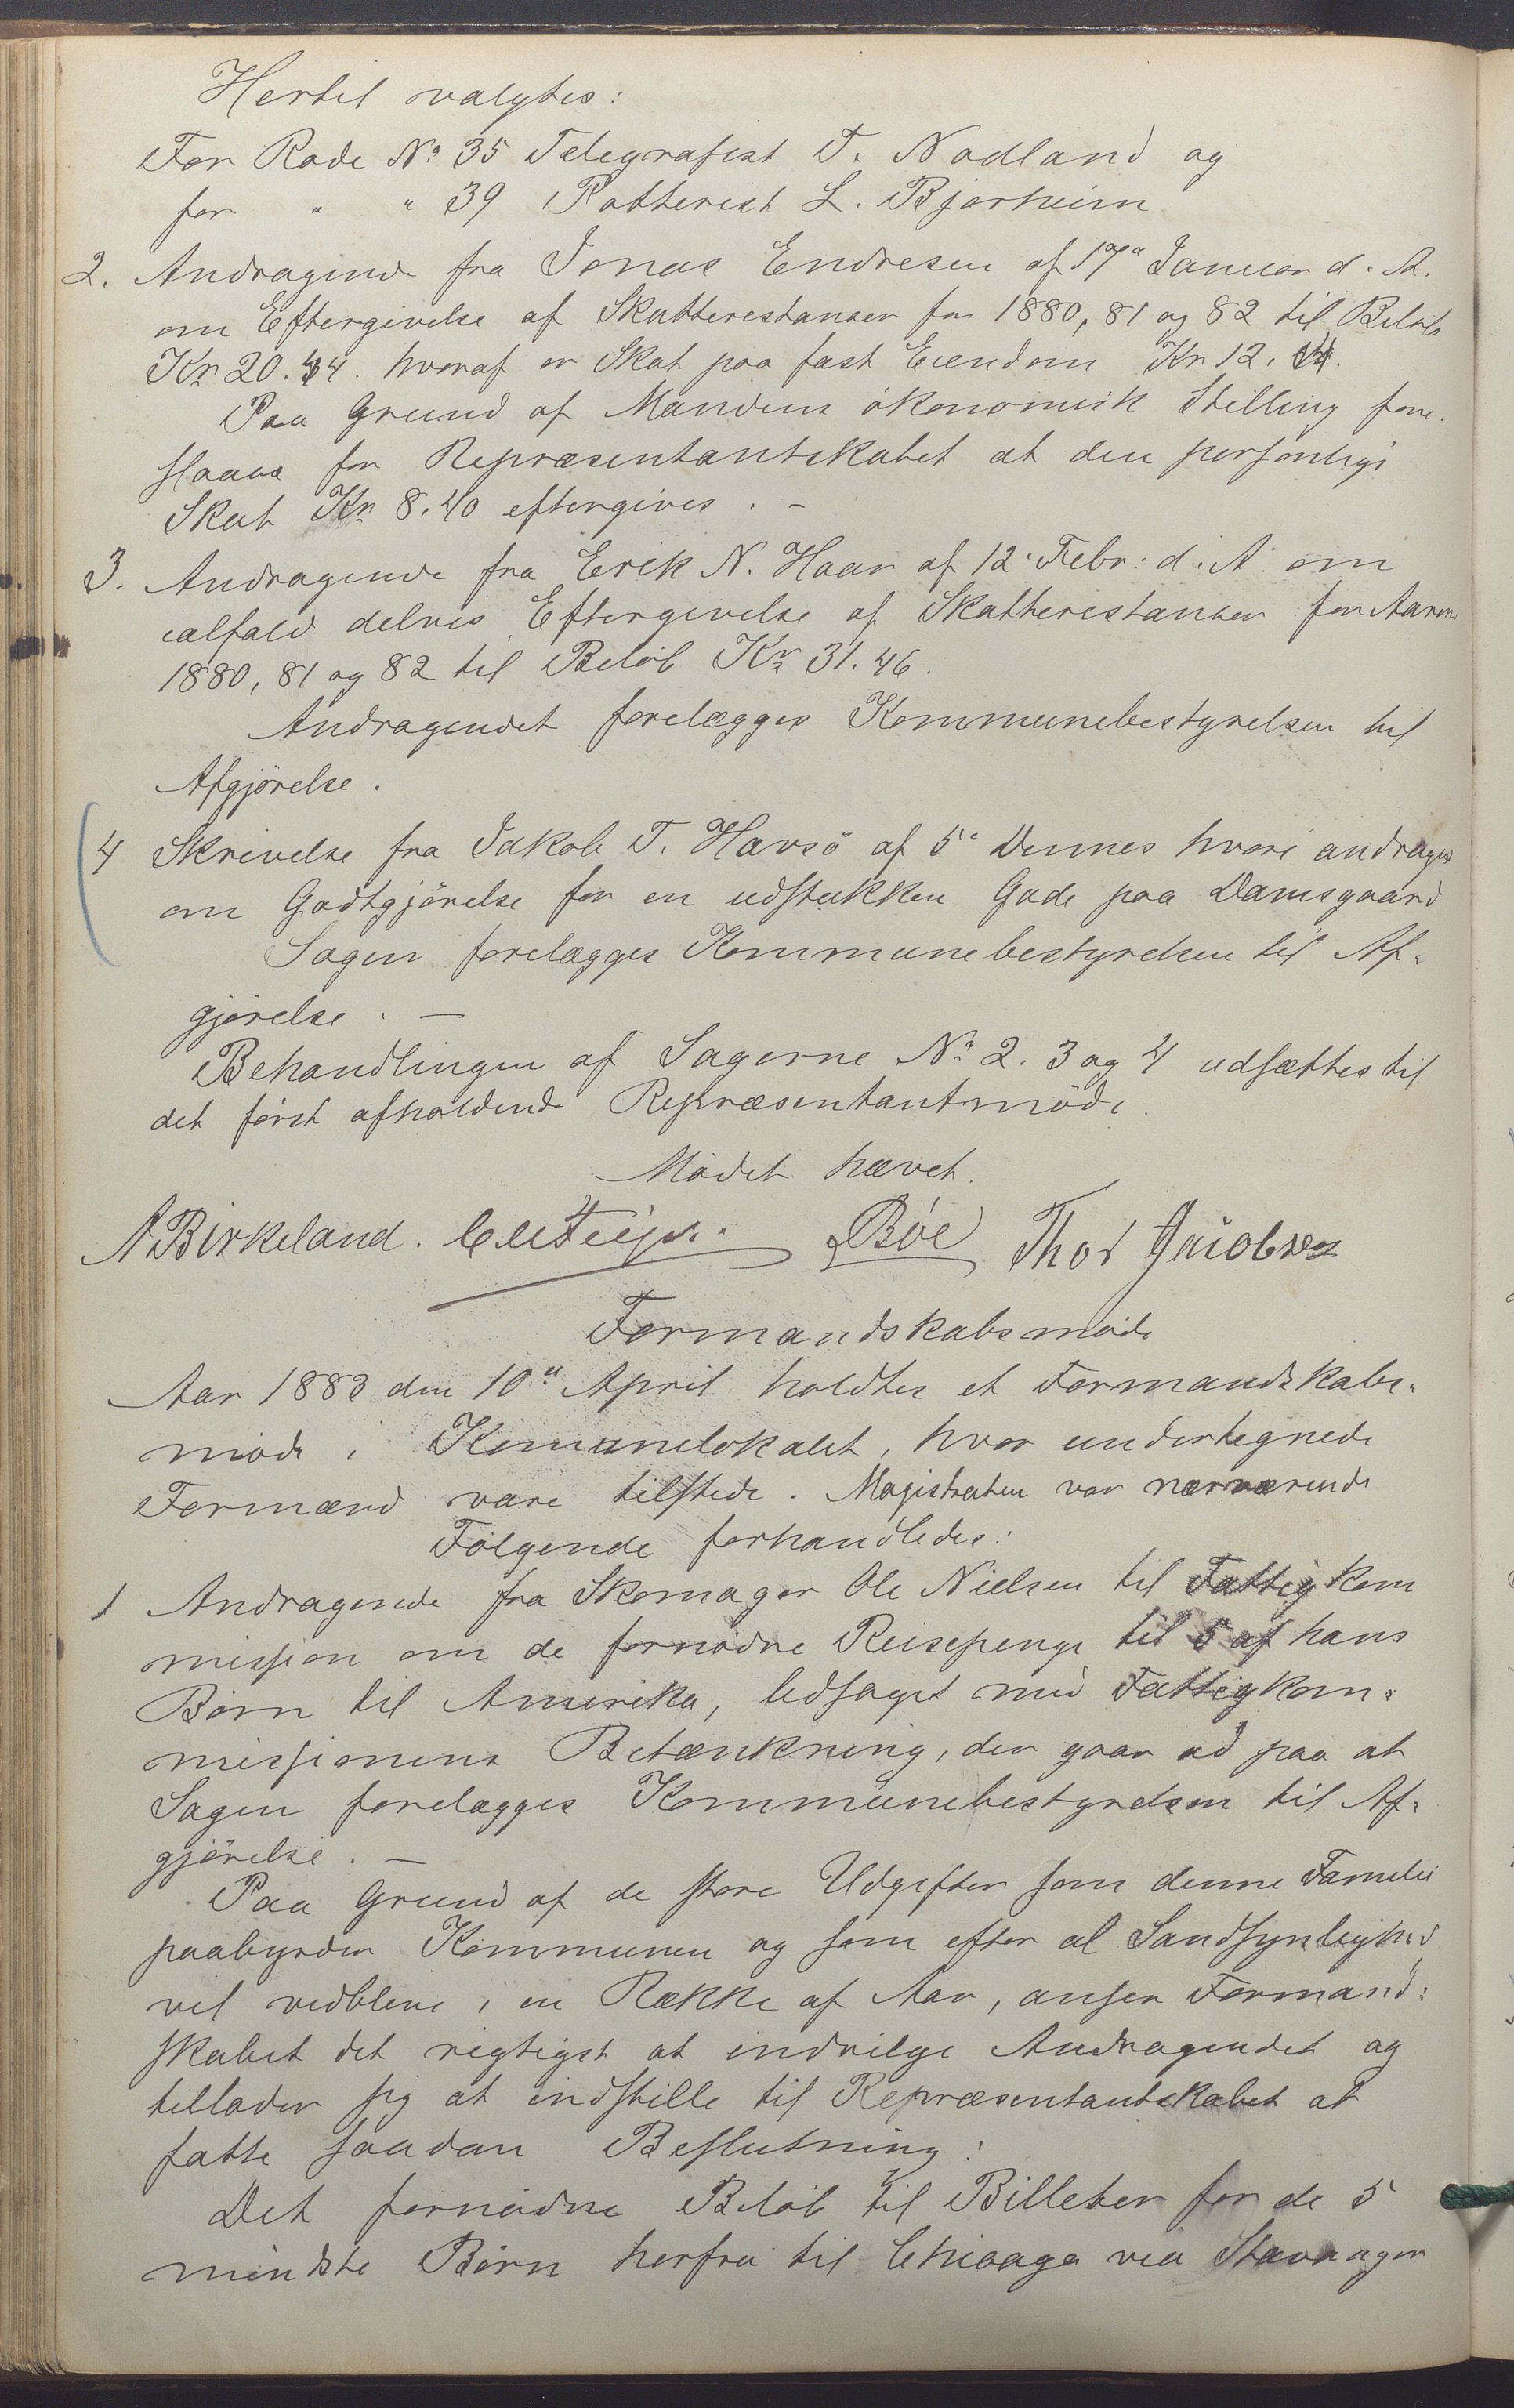 Hertil valgtes:
For Rode No 35 Telegrafist T. Nodland og
for " " 39 Potterist L. Bjorheim
2. Andragende fra Jonas Endresen af 17de Januar d. A.
om Eftergivelse af Skatterestanser for 1880, 81 og 82 til Beløb
Kr 20.44. hvoraf er Skat paa fast Eiendom Kr 12.
Paa Grund af Mandens økonomisk Stilling fore-
slaaes for Repræsentantskabet at den personlige
Skat Kr 8.40 eftergives. -
3. Andragende fra Erik N. Haar af 12. Febr: d. A. om
ialfald delvis Eftergivelse af Skatterestanser for Aarene
1880, 81 og 82 til Beløb Kr 31.46.
Andragendet forelægges Kommunebestyrelsen til
Afgjørelse.
4 Skrivelse fra Jakob T. Havsø af 5te Dennes hvori andrages
om Godtgjørelse for en udstukken Gade paa Damsgaard
Sagen forelægges Kommunebestyrelsen til Af-
gjørelse. -
Behandlingen af Sagerne No 2. 3 og 4 udsættes til
det først afholdende Repræsentantmøde.
Mødet hævet.
A Birkeland. Bøe Thor Jacobsen
Formandskabsmøde
Aar 1883 den 10de April holdtes et Formandskabs-
møde i Komunelokalet, hvor undertegnede
Formænd vare tilstede. Magistraten var nærværende
Følgende forhandledes:
1 Andragende fra Skomager Ole Nielsen til Fattigkom
mission om de fornødne Reisepenge til 5 af hans
Børn til Amerika, ledsaget med Fattigkom-
missionens Betænkning, der gaar ud paa at
Sagen forelægges Kommunebestyrelsen til Af-
gjørelse. -
Paa Grund af de store Udgifter som denne Familie
paabyrder Kommunen og som efter al Sandsynlighed
vil vedblive i en Række af Aar, anser Formand-
skabet det rigtigst at indvilge Andragendet og
tillader sig at indstille til Repræsentantskabet at
fatte saadan Beslutning:
Det fornødne Beløb til Billeter for de 5
mindste Børn herfra til Chicago via Stavanger